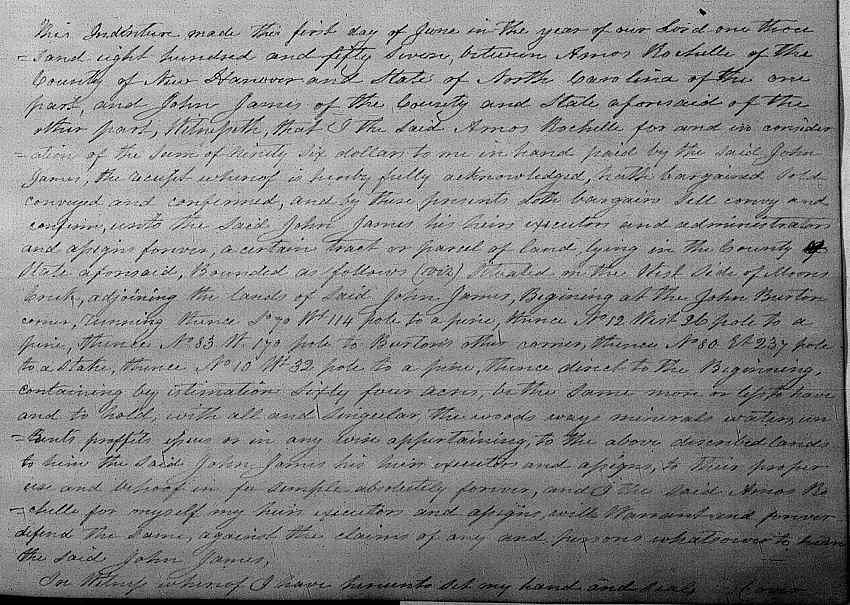 This Indenture made this first day of June in the year of our Lord one thou
=sand eight hundred and fifty seven, between Amos Rochelle of the
County of New Hanover and State of North Carolina of the one
part, and John James of the County and State aforesaid of the
other part, Witnesseth, that I the said Amos Rochelle for and in consider
=ation of the sum of Ninety Six dollars to me in hand paid by the said John
James, the receipt whereof is hereby fully acknowledged, hath bargained sold
conveyed and confirmed, and by these presents doth bargain sell convey and
confirm, unto the said John James his heirs executors and administrators
and assigns forever, a certain tract or parcel of land, lying in the County &
State aforesaid, Bounded as follows (viz) Situated on the West Side of Moores
Creek, adjoining the lands of said John James, Begining at the John Burton
corner, running thence So 70 Wt 114 pole to a pine, thence No 12 West 26 pole to a
pine, thence No 83 W. 170 pole to Burtons other corner, thence No 80 Et 237 pole
to a Stake, thence No 10 Wt 32 pole to a pine, thence direct to The Beginning,
containing by estimation Sixty four acres, be the same more or less to have
and to hold, with all and singular, the woods ways minerals waters,
proffits issues or in any wise appertaining, to the above described lands
to him the said John James his heirs executors and assigns, to their proper
use and behoof in fee simple absolutely forever, and I the said Amos Ro
=chelle for myself my heirs executors and assigns, will Warrant and forever
defend the same, against the claims of any and persons whatsoever to
the said John James,
In Witness whereof I have hereunto set my hand and seal